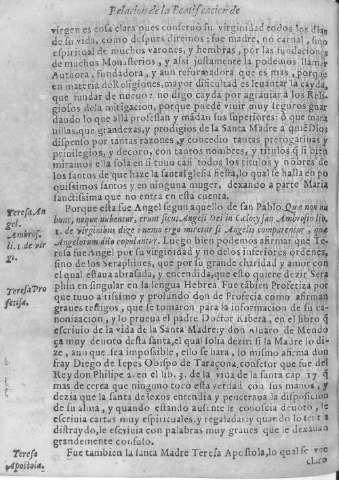 Relacion de la Beatificacion de
virgen es cosa clara pues conseruó su virginidad todos los dias
de su vida, como despues diremos: fue madre, no carnal, sino
espiritual de muchos varones, y hembras, pór las fundaciones
de muchos Monasterios, y assi justamente la podemos llamar
Authora, fundadora, y aun reformadora que es mas, porque
en materia de Religiones, mayor dificultad es leuantar la cayda,
que fundar de nueuo: no digo cayda por agrauiar a los Reli-
giosos de la mitigacion, porque puedẽ viuir muy seguros guar
dando lo que allà professan y mãdan sus superiores: ò que mara
uillas, que grandezas, y prodigios de la Santa Madre a quiẽ Dios
dispensò por tantas razones, y concedio tantas prerogatiuas y
priuilegios, y decoro, con tantos nombres, y titulos q̃ si bien
miramos ella sola en si tuuo casi todos los titulos y nobres de
los santos de que haze la santa Iglesia fiesta, lo qual se halla en po
quissimos santos y en ninguna muger, dexando a parte Maria
sanctissima que no entra en esta cuenta.
Porque esta fue Angel segun aquello de san Pablo. Que non nu
bunt, neque nubentur, erunt sicut Angeli Dei in Cœlo, y san Ambrosio lib.
1. de virginibus dize: nemo ergo miretur si Angelis comparentur, quæ
Angelorum dño copulantur. Luego bien podemos afirmar que Te-
resa fue Angel por su virginidad y no de los inferiores ordenes,
sino de los Seraphines, que por su grande claridad y amor con
el qual estaua abrasada, y encendida, que esto quiere dezir Sera
phin en singular en la lengua Hebrea. Fue tãbien Profetiza por
que tuuo altissimo y profundo don de Profecia como afirman
graues testigos, que se tomaron para la informacion de su ca-
nonizacion, y lo prueua el padre Doctor Ribera, en el libro q̃
escriuio de la vida de la Santa Madre: y don Aluaro de Mendo
ça muy deuoto desta santa, el qual solia dezir: si la Madre lo di-
ze, aunque sea impossible, ello se hara, lo mismo afirma don
fray Diego de Iepes Obispo de Taraçona confesor que fue del
Rey don Philipe 2. en el lib. 3. de la vida de la santa cap 17. q̃
mas de cerca que ninguno tocò esta verdad con sus manos, y
dezia que la santa de lexos entendia y penetraua la disposicion
de su alma, y quando estando ausente le conocia deuoto, le
escriuia cartas muy espirituales, y regaladas: y quando lo sentia
distraydo, le escriuia con palabras muy graues que le dexauan
grandemente confuso.
Fue tambien la santa Madre Teresa Apostola, lo qual se vee
claro
Teresa An
gel.
Ambros.
li. 1. de vir
gi.
Teresa Pro
fetisa.
Teresa
Apostola.